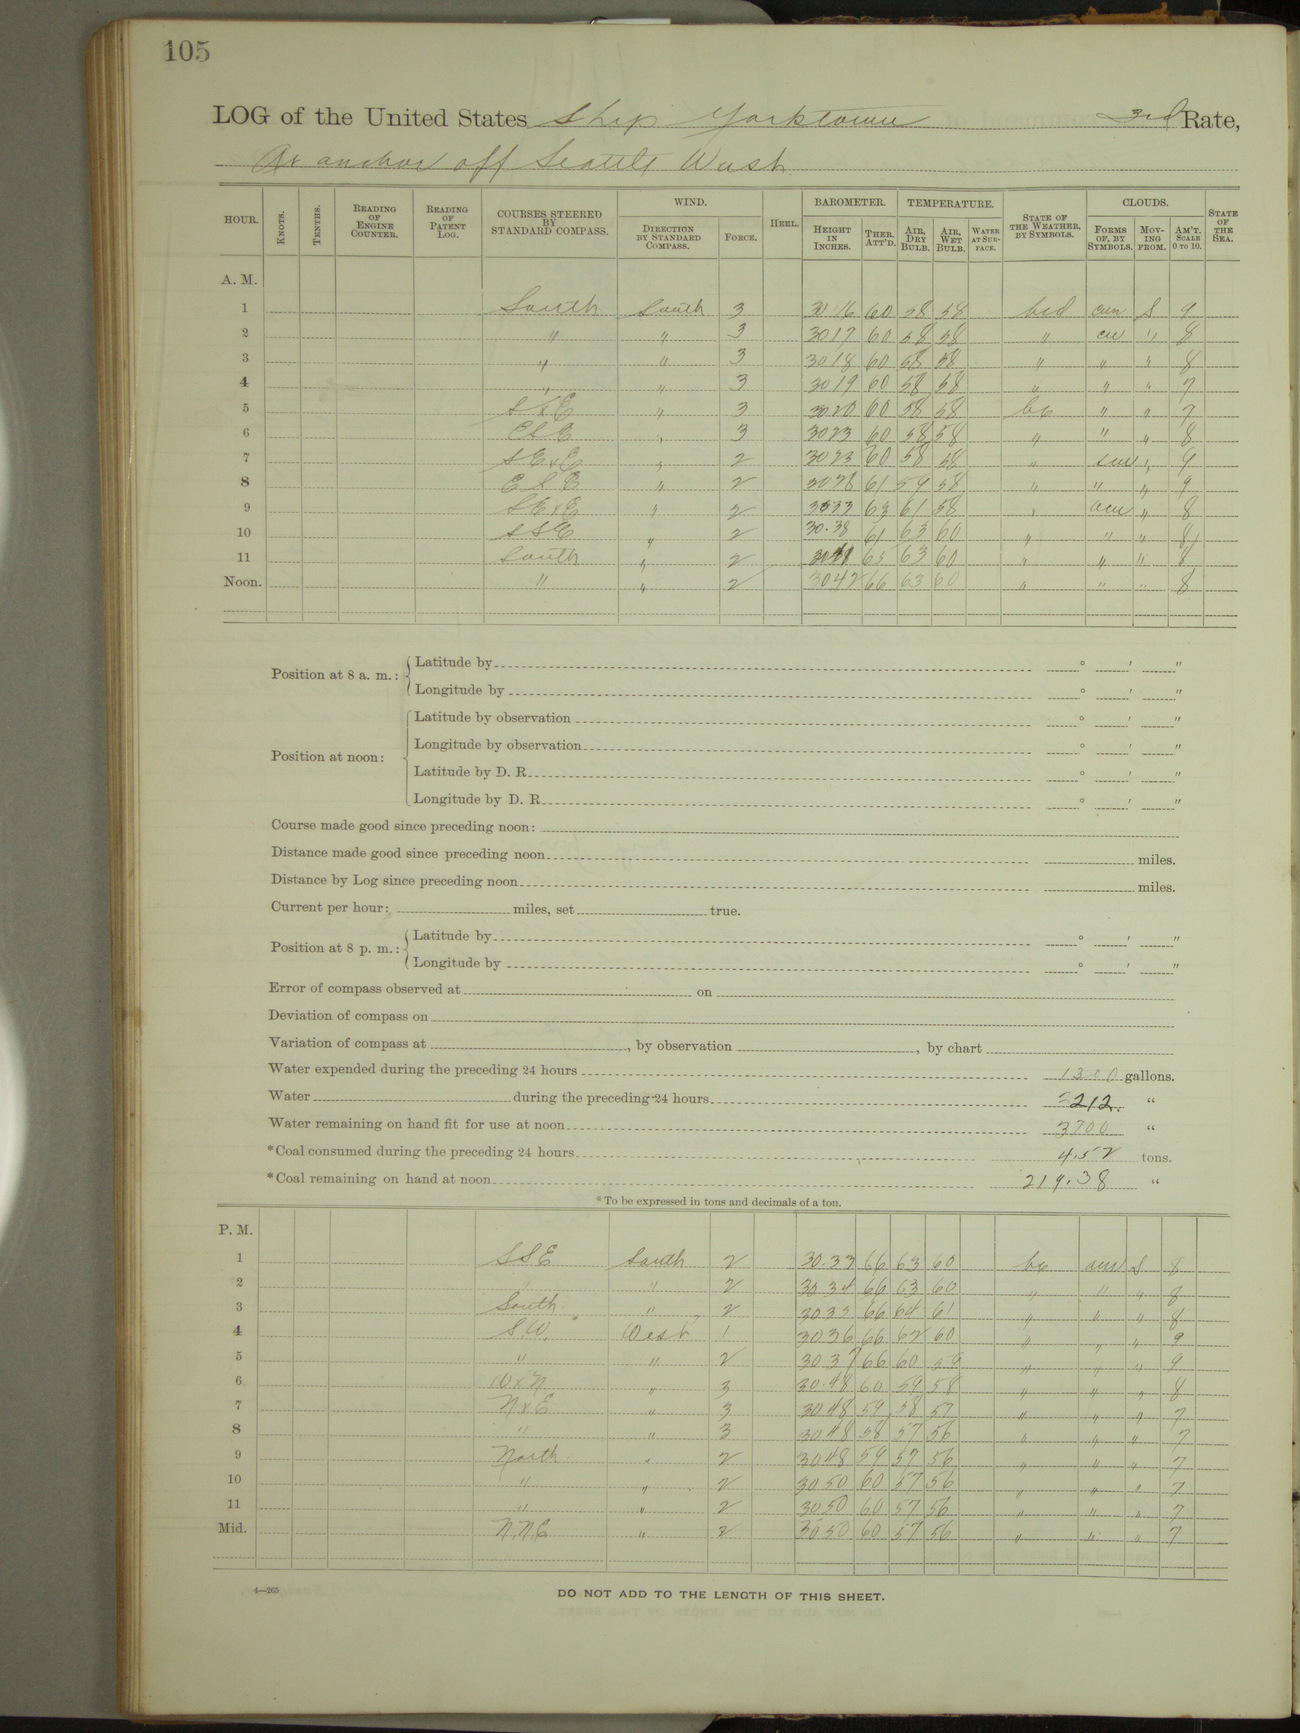 105
LOG of the United States Ship Yorktown 3rd Rate,
At anchor off Seattle Wash
HOUR. KNOTS. TENTHS. READING OF ENGINE COUNTER. READING OF PATENT LOG. COURSES STEERED BY STANDARD COMPASS. WIND. DIRECTION BY STANDARD COMPASS. FORCE. HEEL. BAROMETER. HEIGHT IN INCHES. THER. ATT'D. TEMPERATURE. AIR, DRY BULB. AIR, WET BULB. WATER AT SURFACE. STATE OF THE WEATHER, BY SYMBOLS. CLOUDS. FORMS OF, BY SYMBOLS. MOVING FROM. AM'T. SCALE 0 TO 10. STATE OF THE SEA.
A. M.
1 South South 3 30 16 60 58 58 bcd cum S 9
2 " " 3 30 17 60 58 58 " cu " 8
3 " " 3 30 18 60 58 58 " " " 8
4 " " 3 30 19 60 58 58 " " " 7
5 SxE " 3 30 20 60 58 58 bc " " 7
6 ESE " 3 30 23 60 58 58 " " " 8
7 SExE " 2 30 23 60 58 58 " " 9
8 ESE " 2 30 28 61 59 58 " " " 9
9 SExE " 2 30 33 63 61 58 " " 8
10 SSE " 2 30.38 61 63 60 " " " 8
11 South " 2 65 63 60 " " " 8
Noon. " " 2 30 42 66 63 60 " " " 8
Position at 8 a. m.: Latitude by ° ' "
Longitude by ° ' "
Position at noon: Latitude by observation ° ' "
Longitude by observation ° ' "
Latitude by D. R. ° ' "
Longitude by D. R. ° ' "
Course made good since preceding noon:
Distance made good since preceding noon miles.
Distance by Log since preceding noon miles.
Current per hour: miles, set true.
Position at 8 p. m.: Latitude by ° ' "
Longitude by ° ' "
Error of compass observed at on
Deviation of compass on
Variation of compass at , by observation , by chart
Water expended during the preceding 24 hours 1300 gallons.
Water during the preceding 24 hours 212. "
Water remaining on hand fit for use at noon 3700 "
*Coal consumed during the preceding 24 hours 4.52 tons.
*Coal remaining on hand at noon 219.38 "
*To be expressed in tons and decimals of a ton.
P. M.
1 SSE South 2 30.33 66 63 60 bc S 8
2 " " 2 30 34 66 63 60 " " " 8
3 South " 2 30 35 66 64 61 " " " 8
4 S.W. West 1 30 36 66 62 60 " " " 9
5 " " 2 30 37 66 60 59 " " " 9
6 WxN " 3 30.48 60 59 58 " " " 8
7 NxE " 3 30 48 59 58 57 " " " 7
8 " " 3 30 48 58 57 56 " " " 7
9 North " 2 30 48 59 57 56 " " " 7
10 " " 2 30 50 60 57 56 " " " 7
11 " " 2 30 50 60 57 56 " " " 7
Mid. N.N.E " 2 30 50 60 57 56 " " " 7
4—265
DO NOT ADD TO THE LENGTH OF THIS SHEET.